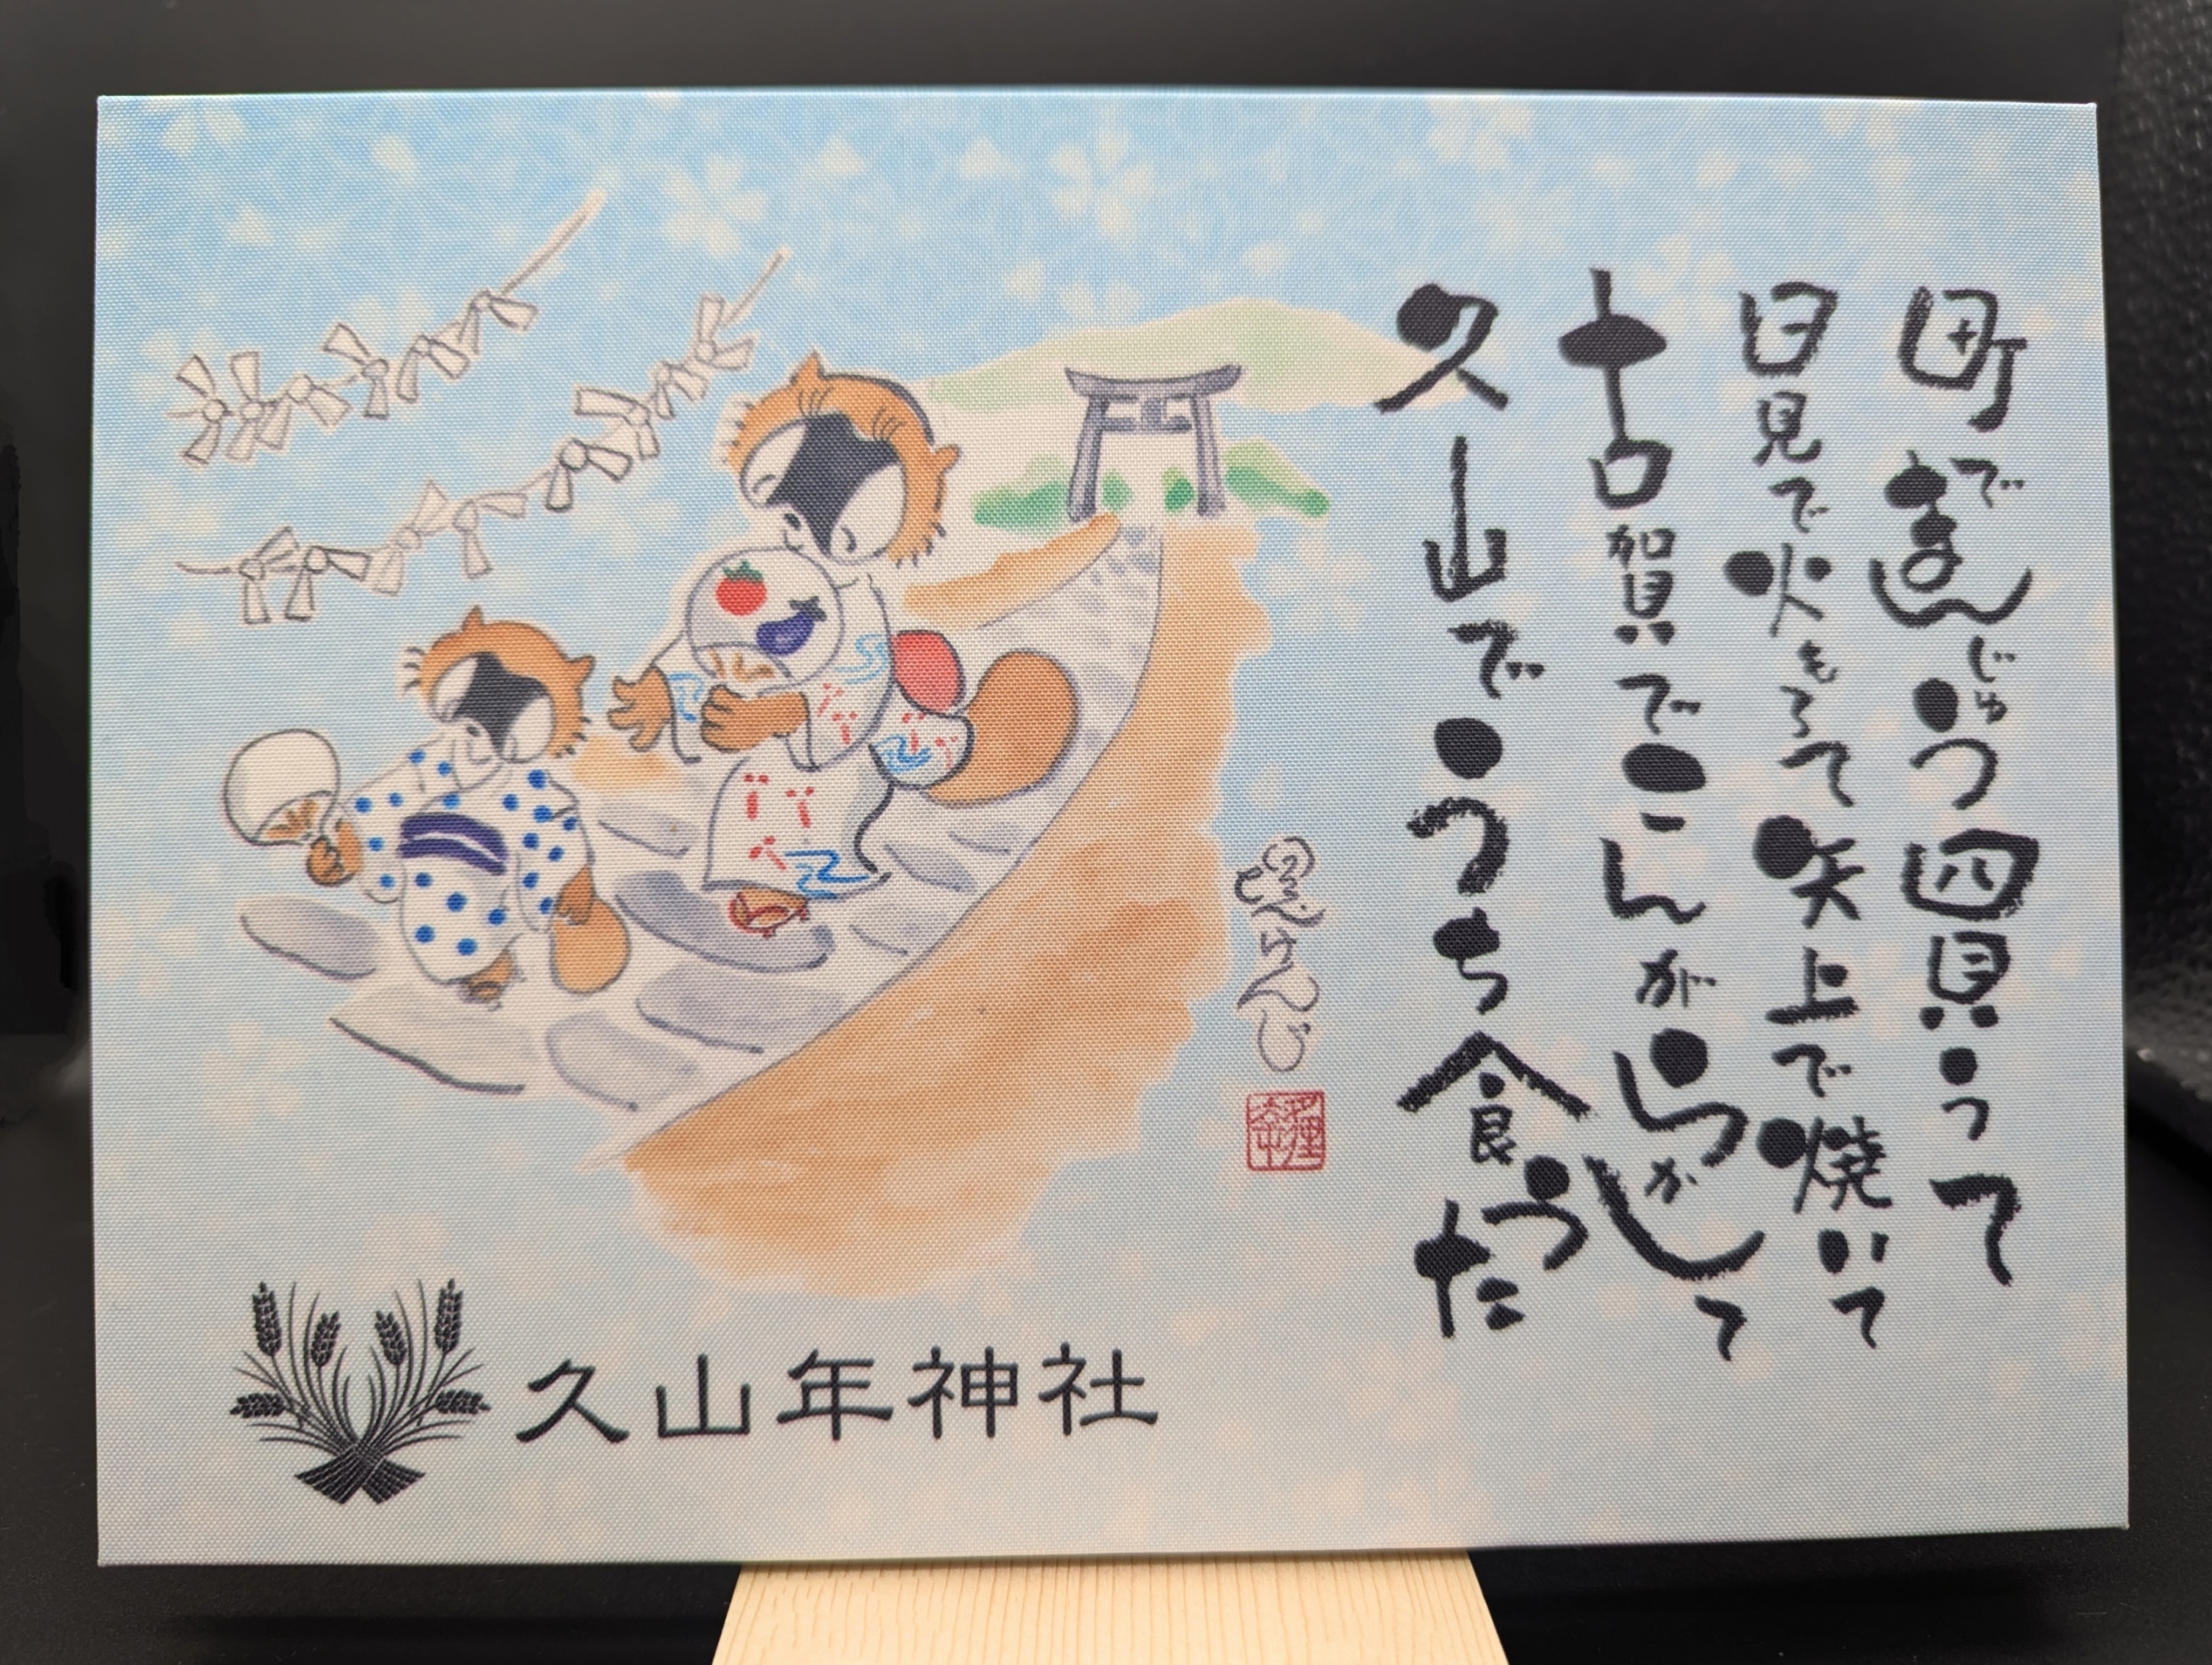 町でまんじゅう四買うて
日見で火もろて矢上で焼いて
古賀でこんがらかして
久山でうち食うた
けんじ
久山年神社